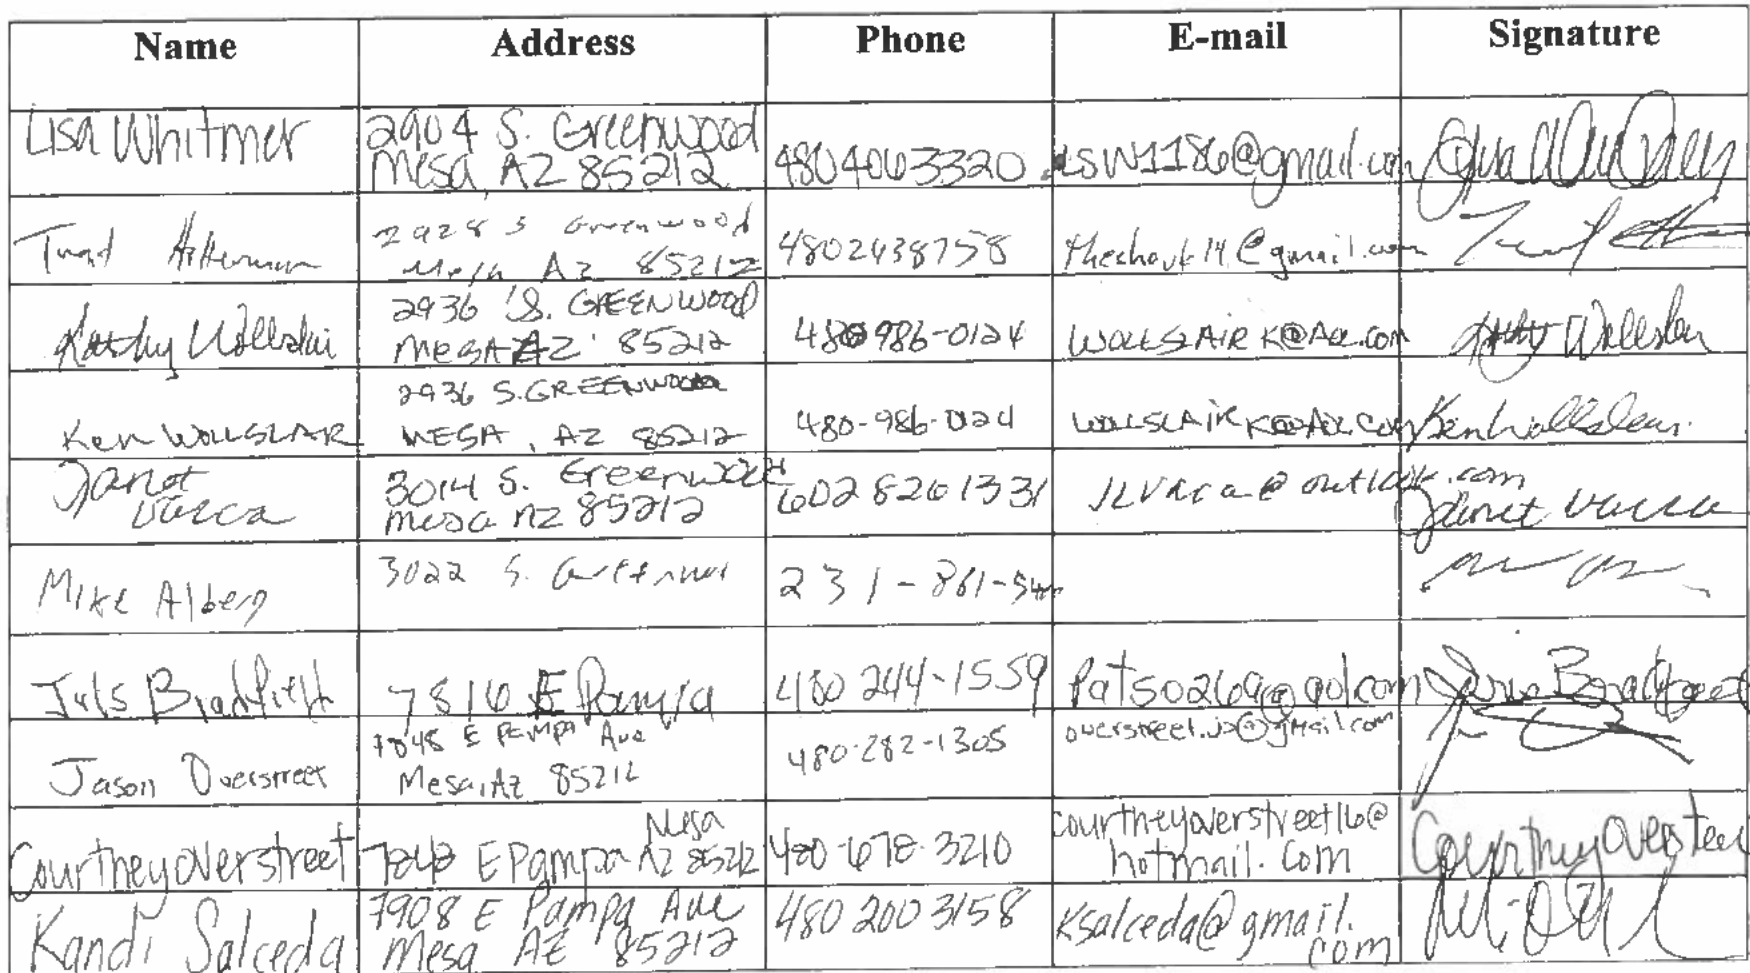 Name Address Phone E-mail Signature
Lisa Whitmer 2904 S. Greenwood
Mesa, AZ 85212 4804063320 LSW1186@gmail.com
2928 S Greenwood
Mesa AZ 85212 4802438758 @gmail.com
Kathy 2936 S. GREENWOOD
MESA AZ 85212 480 986-0124 WOLLSLAIRK@AOL.com Kathy
2936 S. GREENWOOD
Ken WOLLSLAIR MESA, AZ 85212 480-986-0124 WOLLSLAIRK@AOL.com Ken
Janet
Vacca 3014 S. Greenwood
Mesa AZ 85212 602 826 1331 JLVacca@outlook.com Janet Vacca
Mike 3022 S. 231-861-
7816 E Pampa 480 244-1559 Pat50269@aol.com
Jason Overstreet 7848 E Pampa Ave
Mesa, Az 85212 480-282-1305 overstreet.jo@gmail.com
Courtney Overstreet 7848 E Pampa Mesa
AZ 85212 480-678-3210 courtneyoverstreet16@
hotmail.com Courtney Overstreet
Kandi Salceda 7908 E Pampa Ave
Mesa AZ 85212 480 200 3158 Ksalceda@gmail.
com